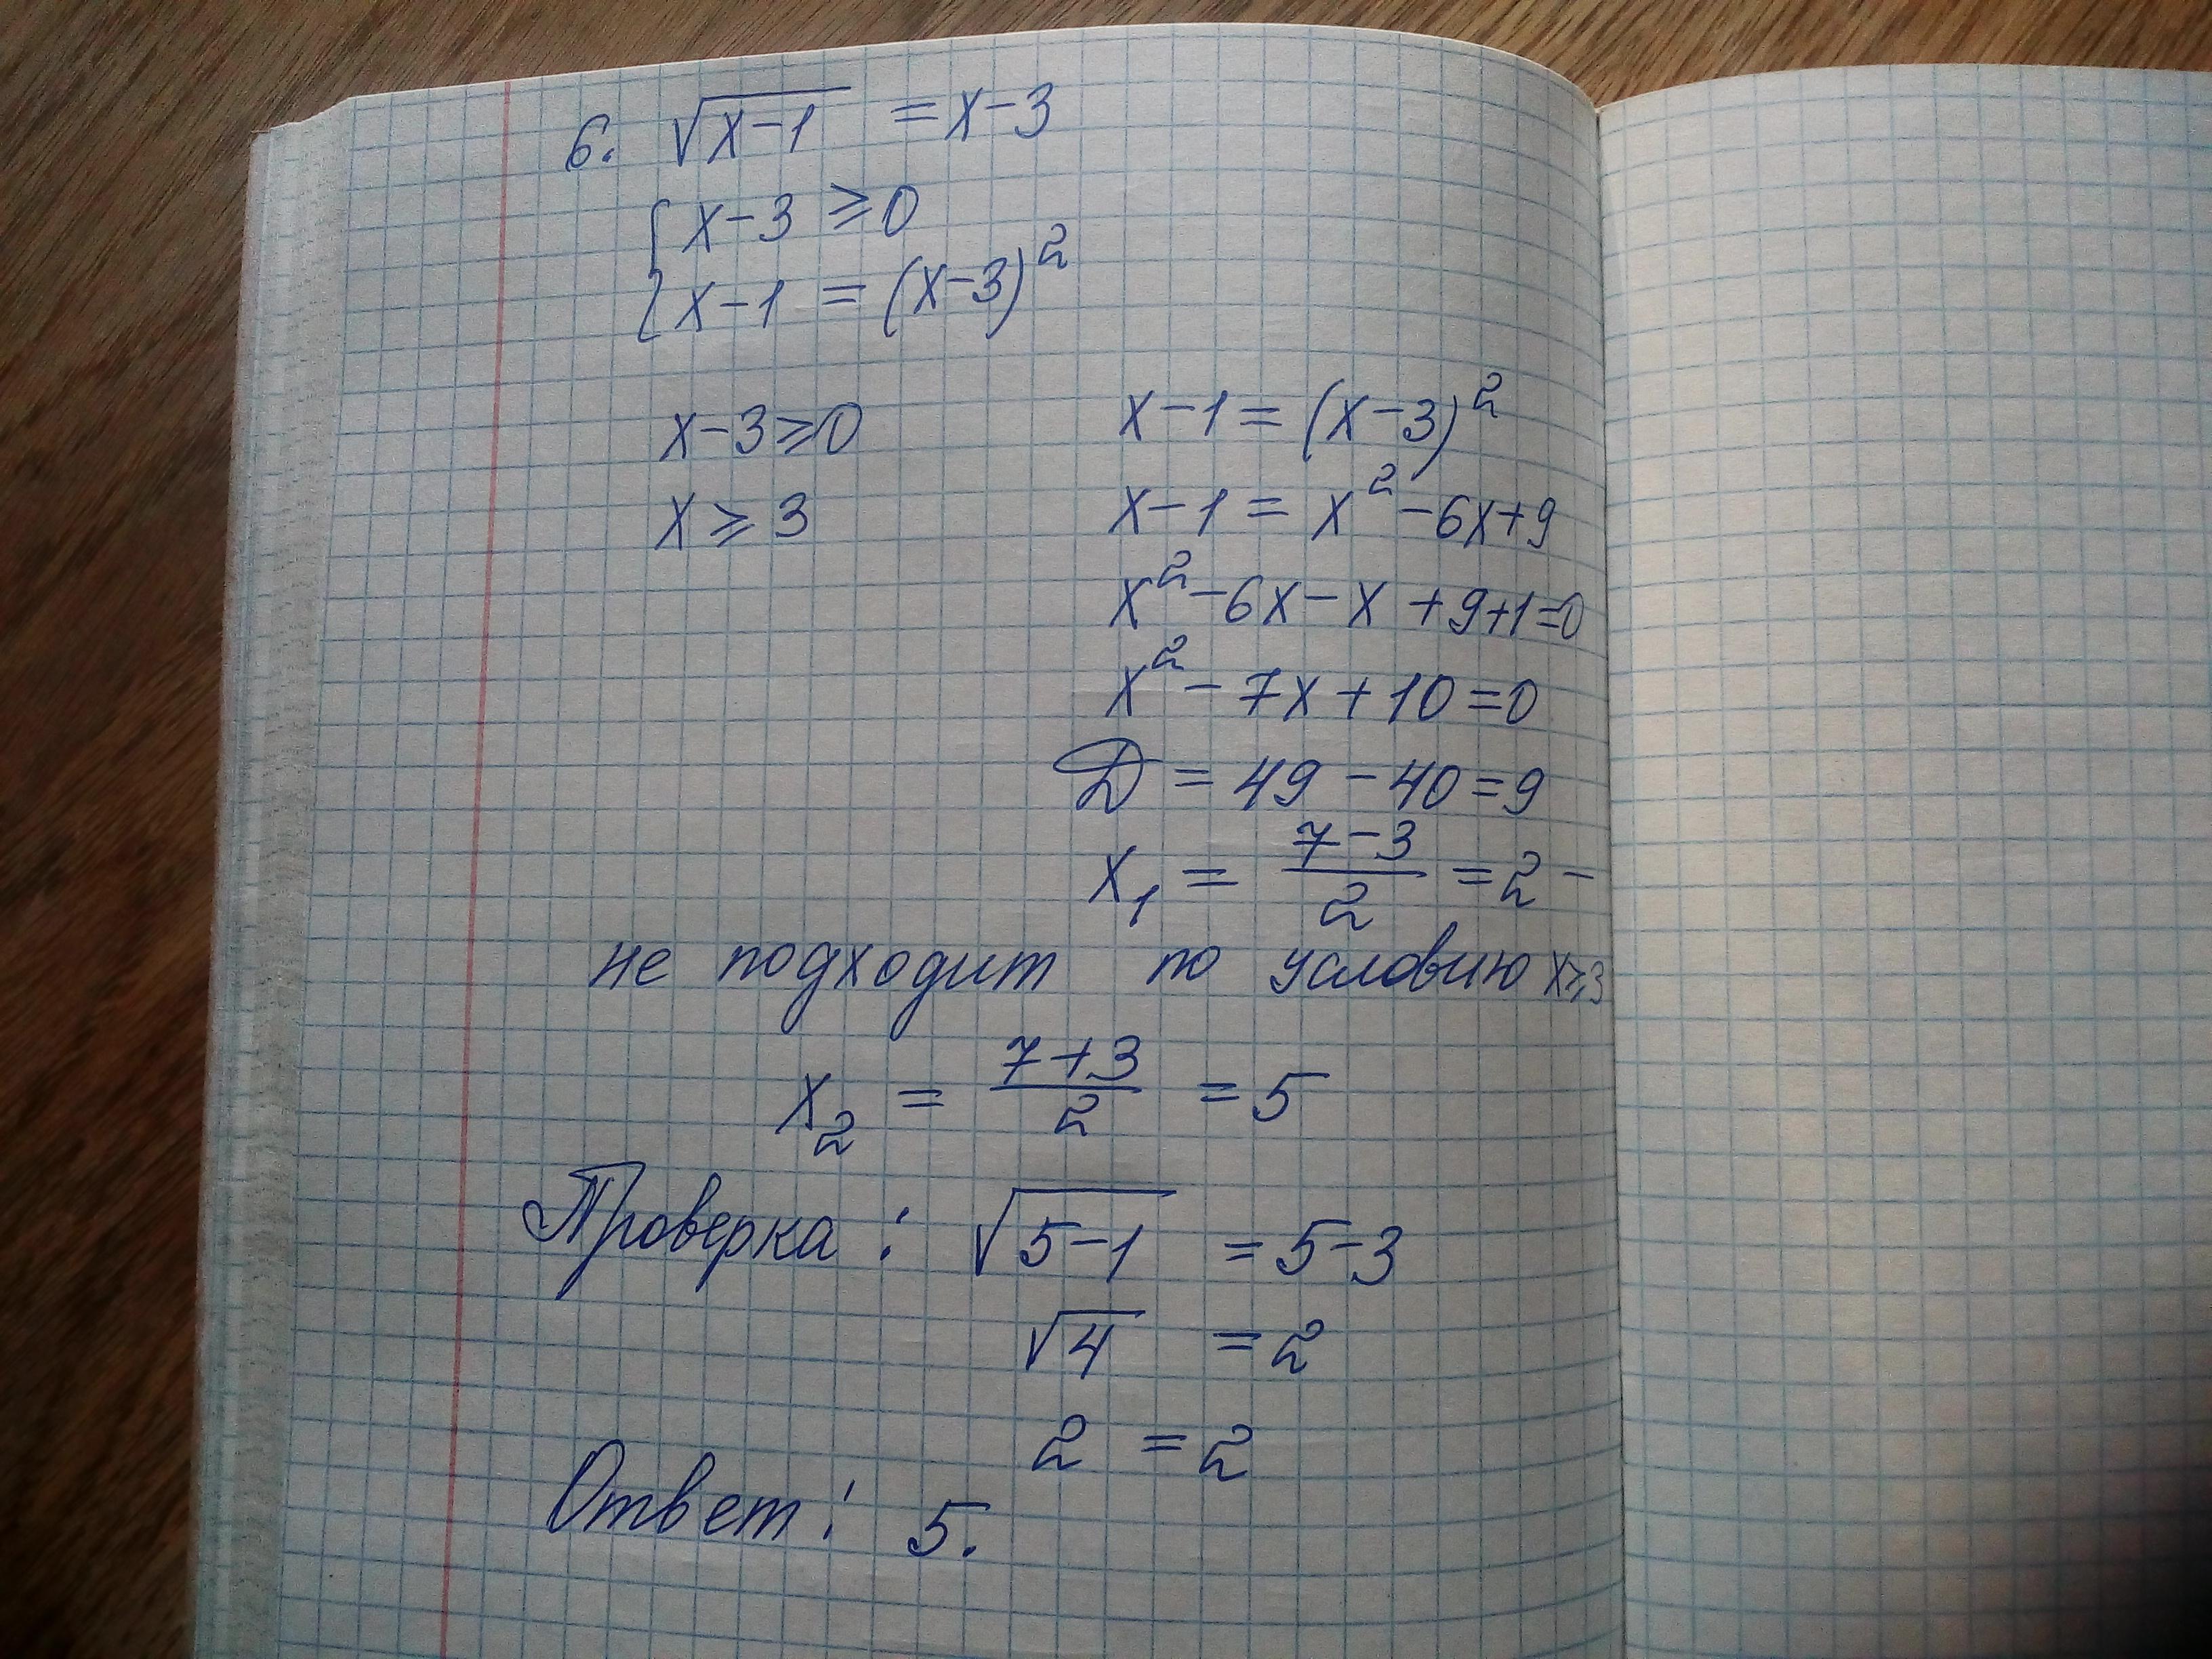 6. √(x-1) = x-3
{ x-3 ⩾ 0
{ x-1 = (x-3)²
x-3 ⩾ 0
x ⩾ 3
x-1 = (x-3)²
x-1 = x²-6x+9
x²-6x-x+9+1=0
x²-7x+10=0
D = 49-40=9
x₁ = (7-3)/2 = 2 -
не подходит по условию x⩾3
x₂ = (7+3)/2 = 5
Проверка: √(5-1) = 5-3
√4 = 2
2 = 2
Ответ: 5.